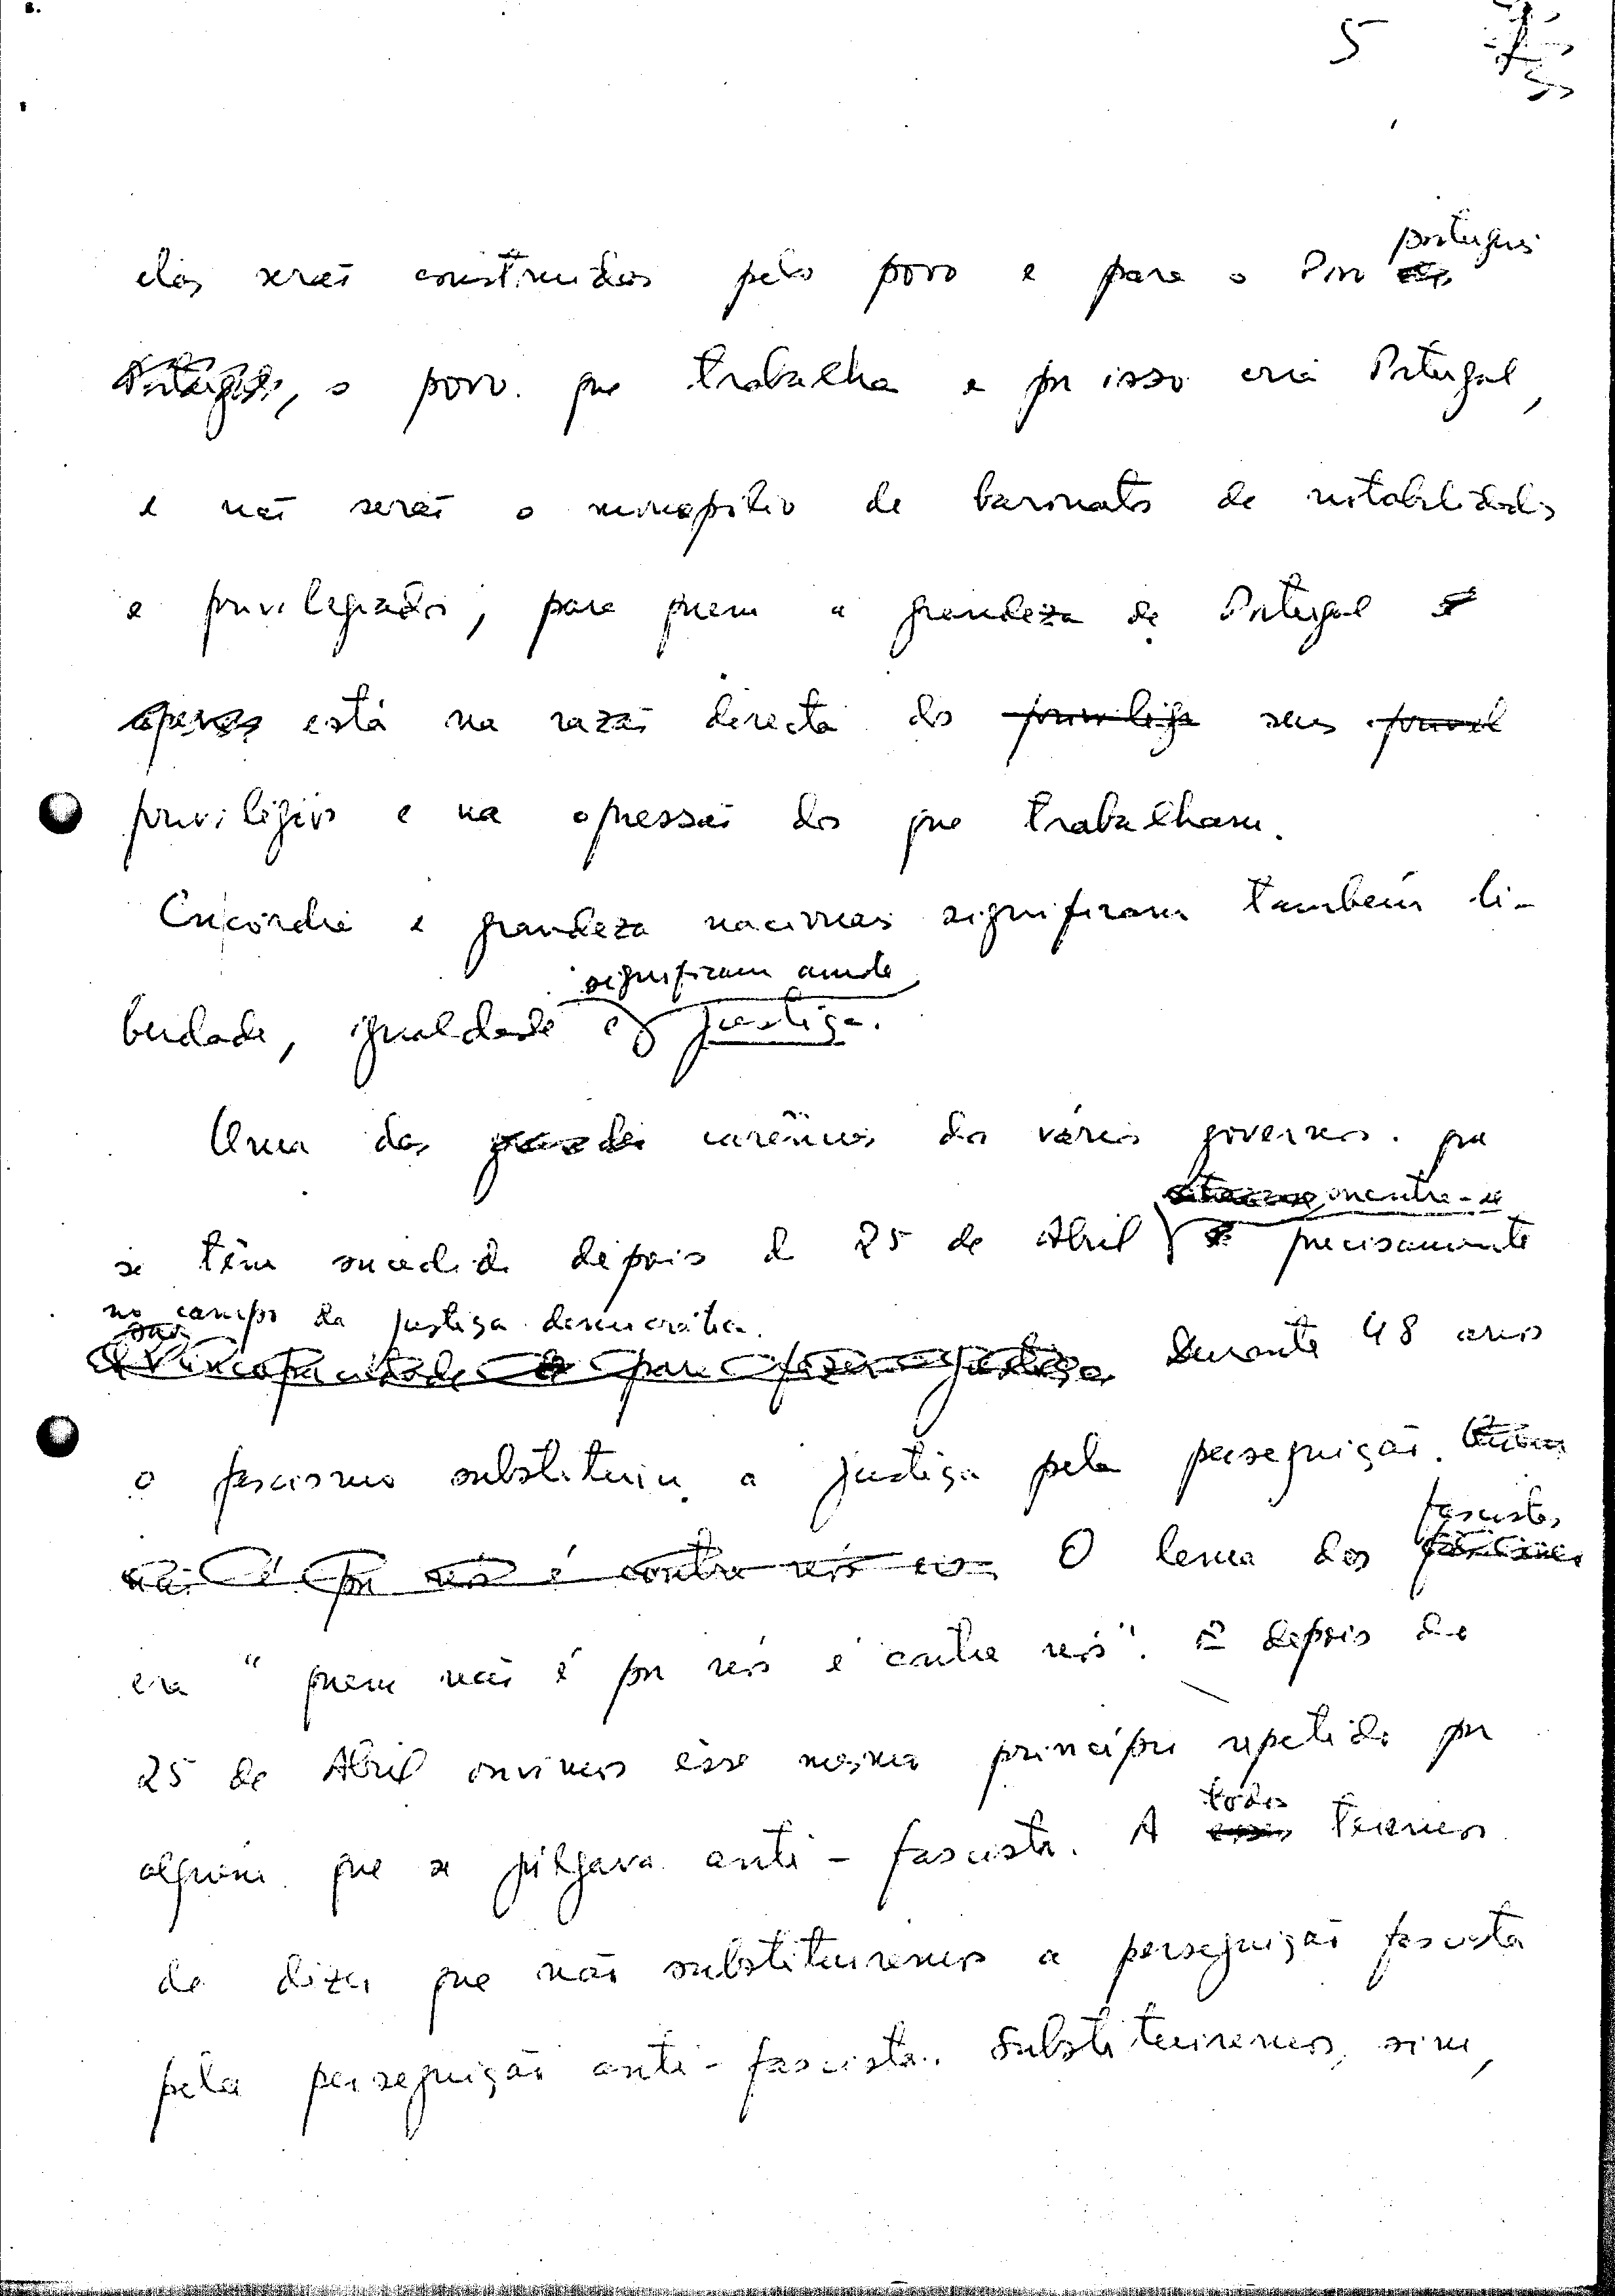 5
português
elas serão construídas pelo povo e para o Povo
, o povo que trabalha e por isso cria Portugal,
e não serão o monopólio de baronatos de notabilidades
e privilegiados, para quem a grandeza de Portugal é
apenas está na razão directa dos privilégi seus privil
privilégios e na opressão dos que trabalham.
Concórdia e grandeza nacionais significam também li-
significam ainda
berdade, igualdade e justiça.
Uma das grandes carências dos vários governos que
encontra-se
se têm sucedido depois do 25 de Abril é precisamente
no campo da justiça democrática.
a sua incapacidade de para fazer justiça. Durante 48 anos
o fascismo substituiu a justiça pela perseguição. Quem
fascistas
não é por nós é contra nós O lema dos
era "quem não é por nós é contra nós". E depois do
25 de Abril ouvimos esse mesmo princípio repetido por
todos
alguém que se julgava anti-fascista. A esses temos
de dizer que não substituiremos a perseguição fascista
pela perseguição anti-fascista. Substituiremos, sim,